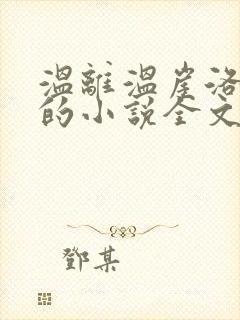 温離温崖洛
的小說全文
鄧某